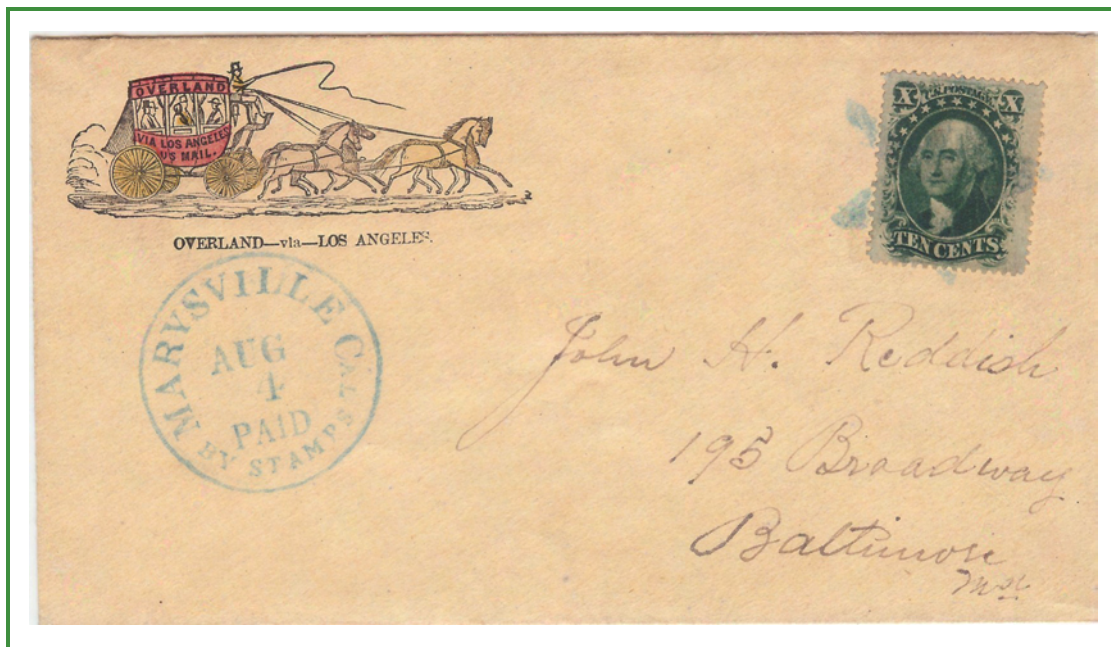 OVERLAND
VIA LOS ANGELES
US MAIL.
OVERLAND—via—LOS ANGELES.
X U.S. POSTAGE X
TEN CENTS
MARYSVILLE CAL
AUG
4
PAID
BY STAMPS
John H. Reddish
195 Broadway
Baltimore
Md.